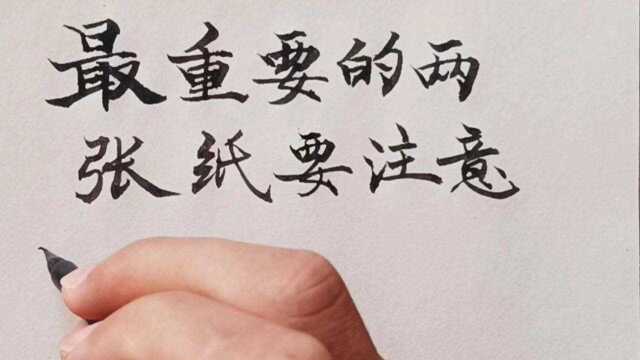 最重要的两
张纸要注意